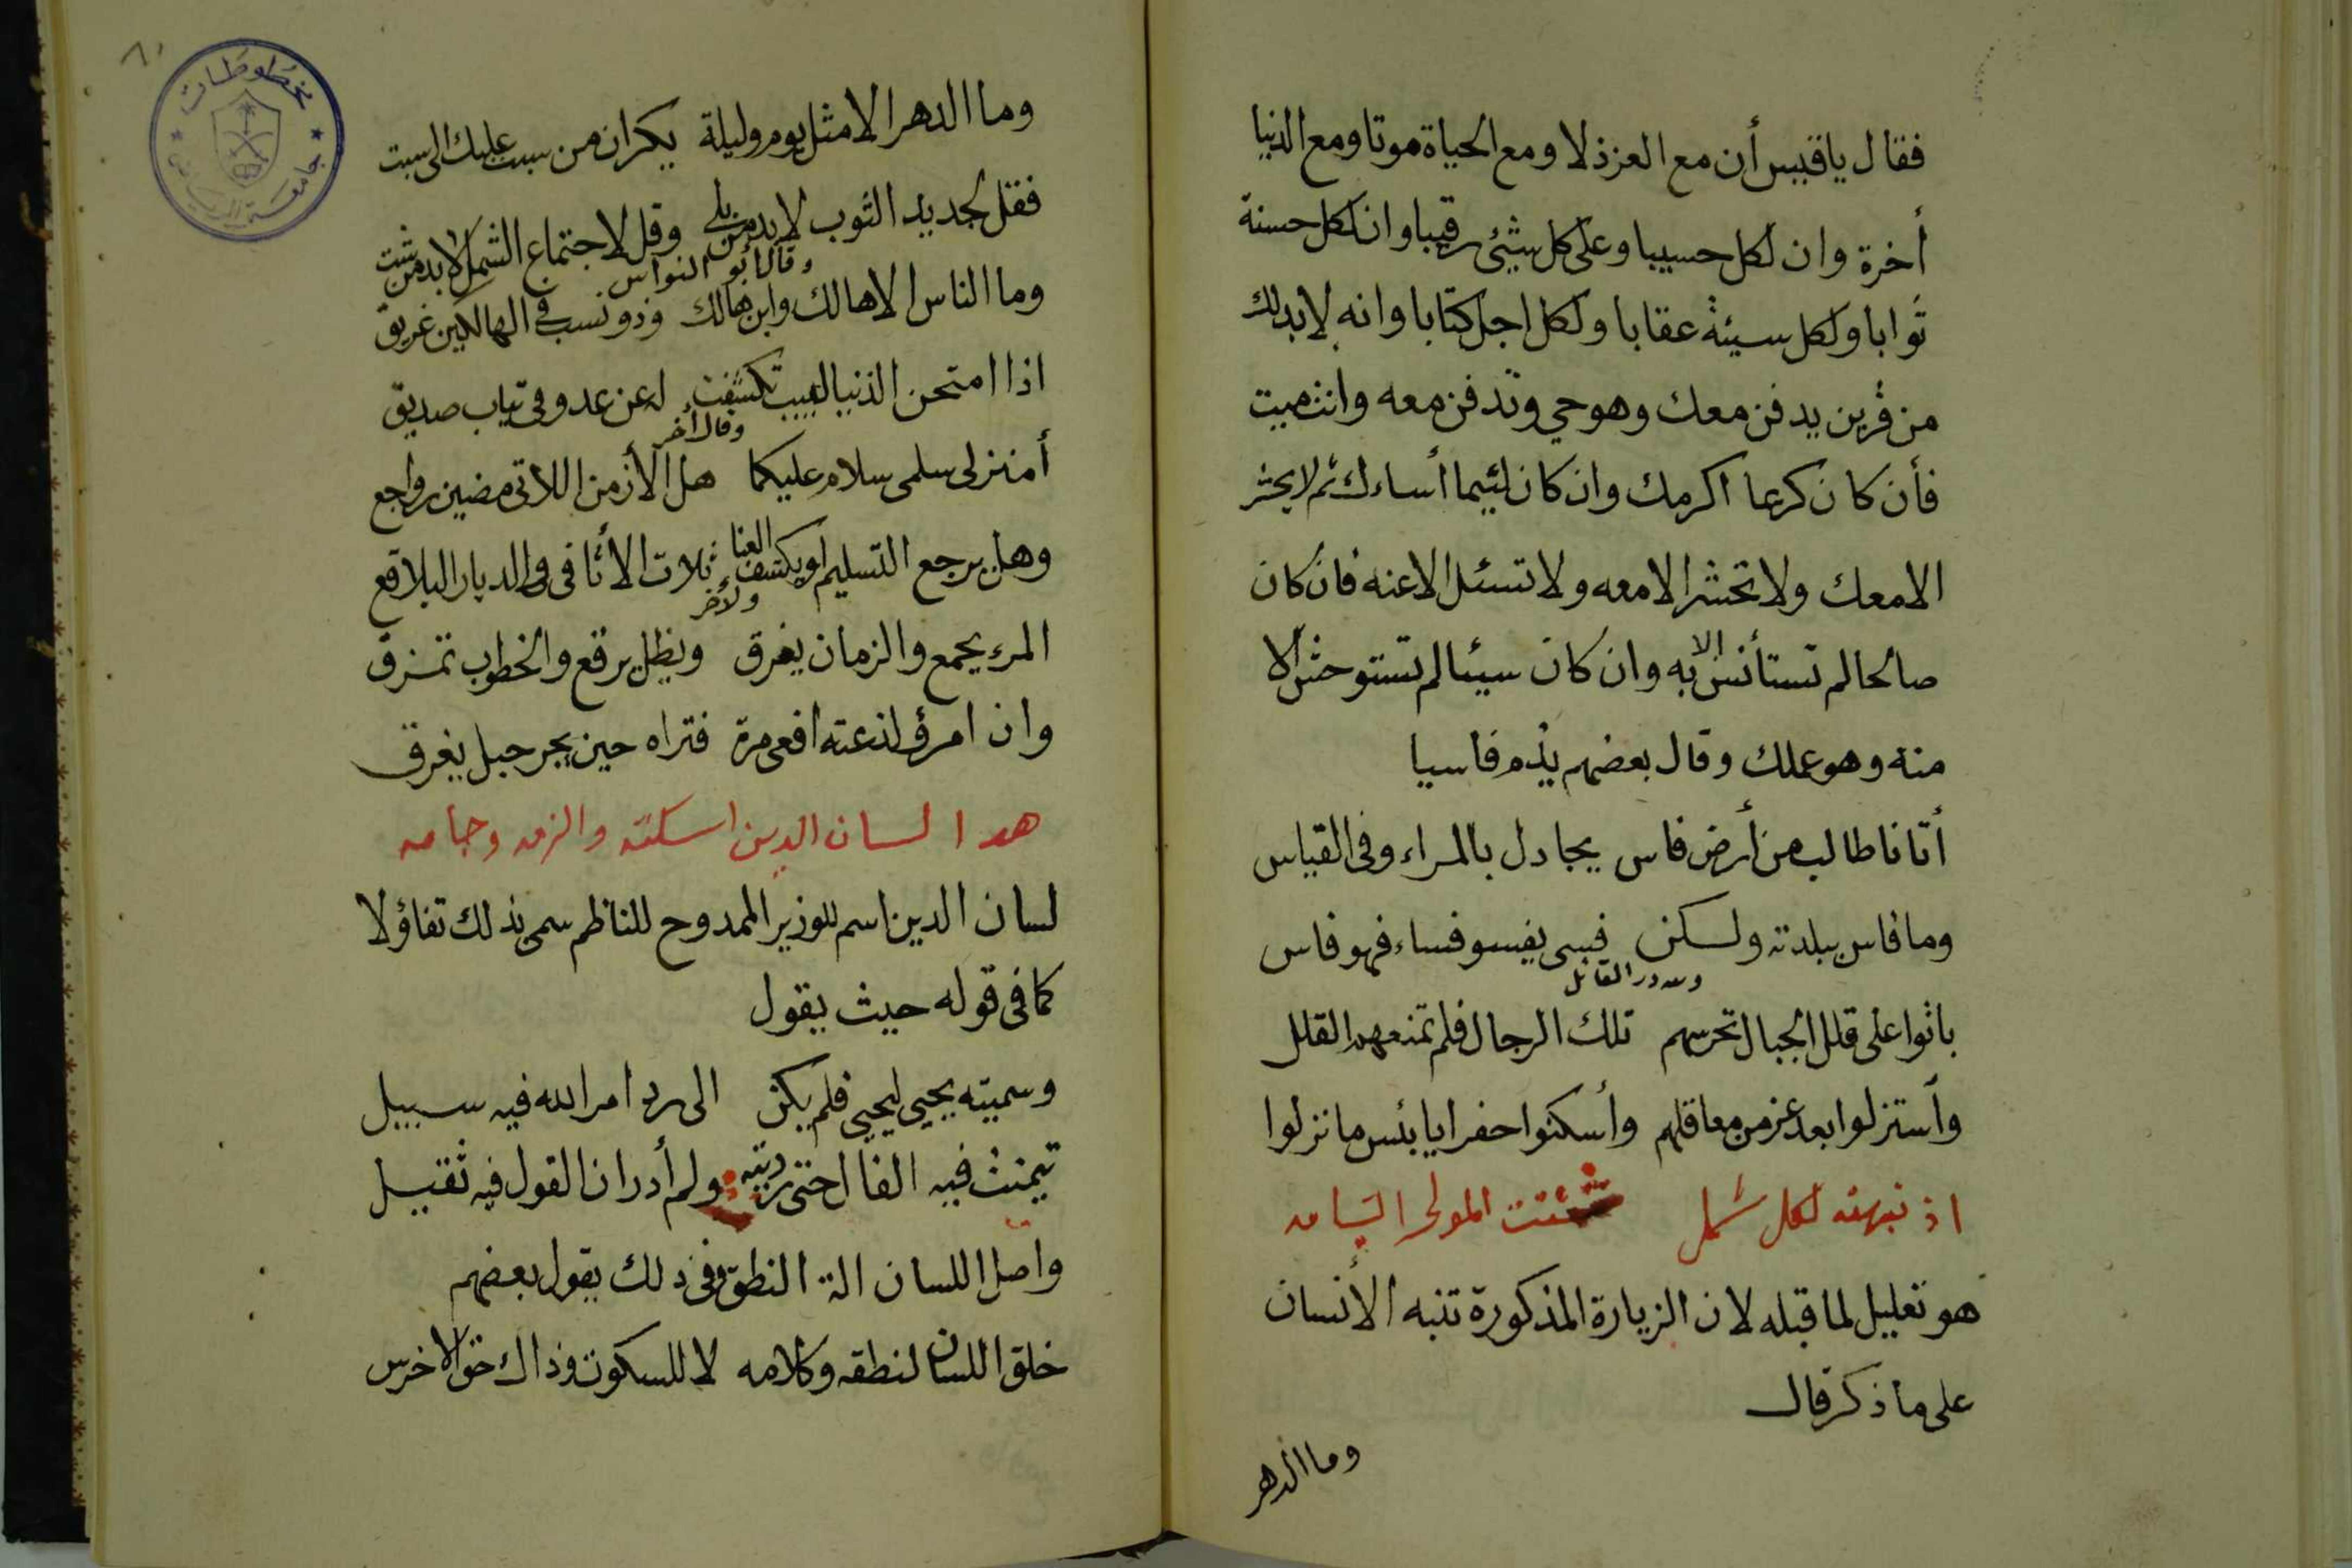 فقال ياقيس أن مع العز ذلا ومع الحياة موتا ومع الدنيا
أخرة وان لكل حسيبا وعلى كل شيئ رقيبا وان لكل حسنة
ثوابا ولكل سيئة عقابا ولكل اجل كتابا وانه لابد لك
من قرين يدفن معك وهو حي وتدفن معه وانت ميت
فأن كان كريما اكرمك وان كان لئيما أساءك ثم لا يحشر
الا معك ولا تحشر الا معه ولا تسئل الا عنه فان كان
صالحا لم تستأنس الا به وان كان سيئا لم تستوحش الا
منه وهو عملك وقال بعضهم يذم فاسيا
أتانا طالب من أرض فاس يجادل بالمراء وفى القياس
وما فاس ببلدته ولكن فسى يفسو فساء فهو فاس
ولله در القائل
باتوا على قلل الجبال تحرسهم تلك الرجال فلم تمنعهم القلل
وأستنزلوا بعد عز من معاقلهم وأسكنوا حفرا يا بئس ما نزلوا
اذ نبهته لكل شمل شتت المولى التيامه
هو تعليل لما قبله لان الزيارة المذكورة تنبه الأنسان
على ما ذكر قال
وما الدهر
٨٠
مخطوطات
جامعة الرياض
وما الدهر الا مثل يوم وليلة يكران من سبت عليك الى سبت
فقل لجديد الثوب لابد من بلى وقل لاجتماع الشمل لابد من شت
وقال أبو النواس
وما الناس الا هالك وابن هالك وذو نسب فى الهالكين غريق
اذا امتحن الدنيا لبيب تكشفت له عن عدو فى ثياب صديق
وقال أخر
أمنزلى سلمى سلام عليكما هل الأزمن اللاتى مضين رواجع
وهل يرجع التسليم او يكشف العنا ثلاث الأثافى والديار البلاقع
ولأخر
المرء يجمع والزمان يفرق ويظل يرقع والخطوب تمزق
وان امرؤ لذعته افعى مرة فتراه حين يجر حبل يغرق
هذا لسان الدين اسكته والزمه رجامه
لسان الدين اسم للوزير الممدوح للناظم سمى بذلك تفاؤلا
كما فى قوله حيث يقول
وسميته يحيى ليحيى فلم يكن الى رد امر الله فيه سبيل
تيمنت فيه الفال حتى رزيته ولم أدر ان القول فيه ثقيل
واصل اللسان الة النطق وفى ذلك يقول بعضهم
خلق اللسان لنطقه وكلامه لا للسكوت وذاك حق الاخرس